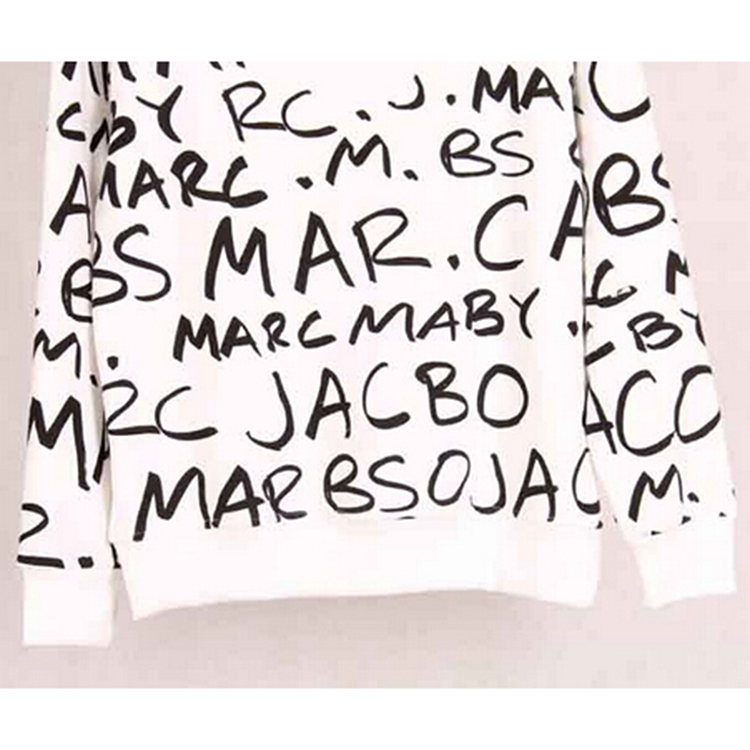 BY RC . J . MA
MARC . M . BS
BS MAR . C ABS
. MARC MABY . BY
M . RC JACBO ACO
MARBSOJAC M.